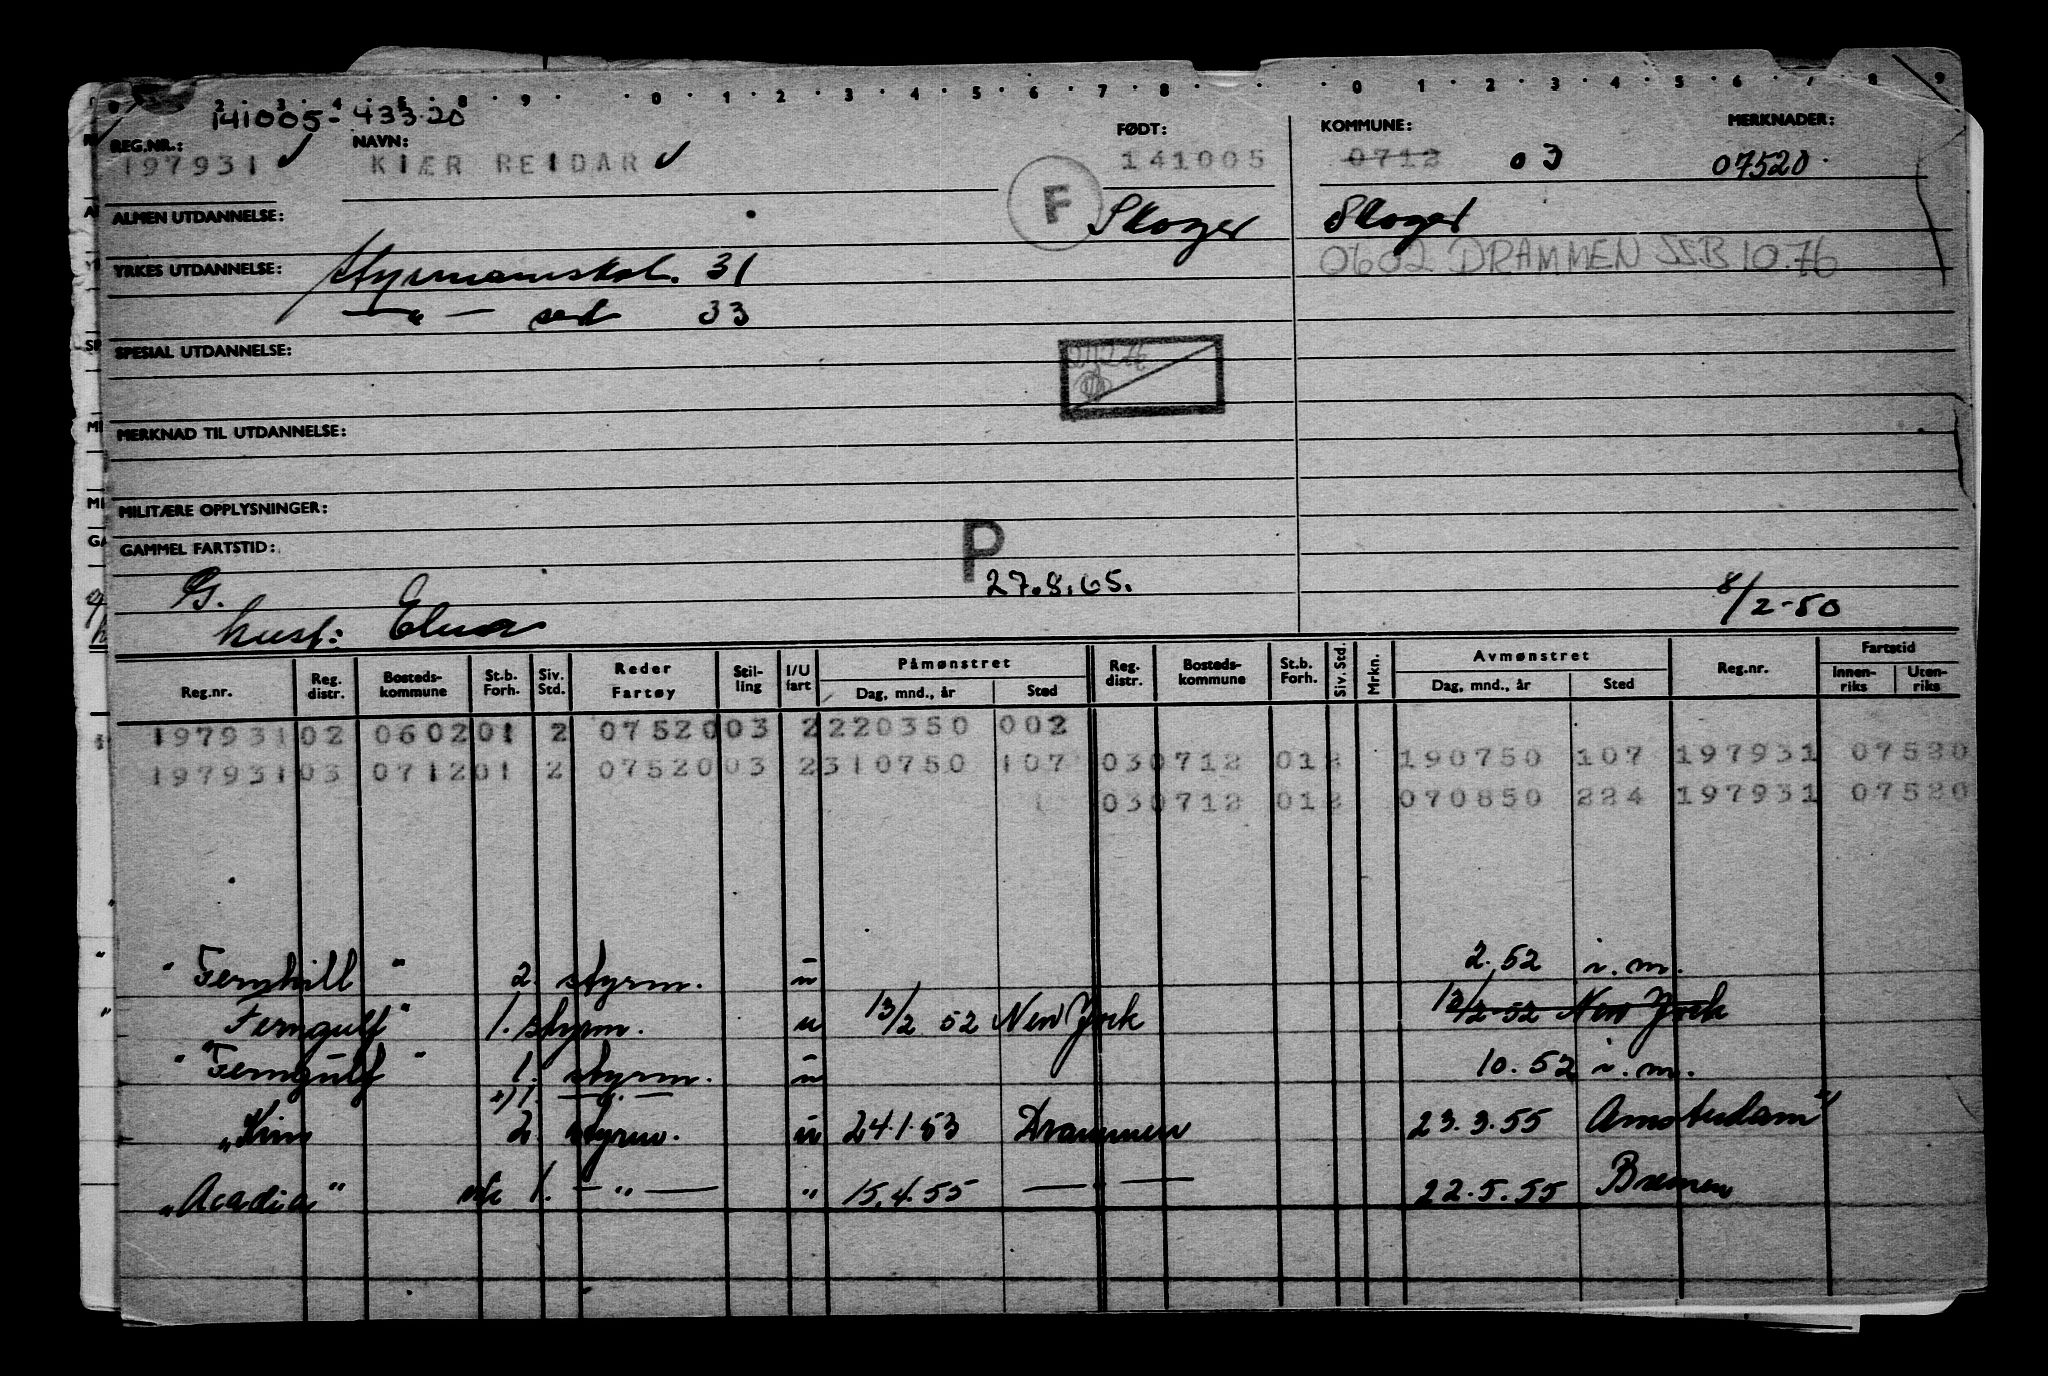 0 2 3 4 5 8 9 0 1 2 3 4 5 6 7 8 0 1 2 3 4 5 6 7 8 9
141005-43320
REG.NR.: NAVN: FØDT: KOMMUNE: MERKNADER:
197931 KIÆR REIDAR 141005 0712 03 07520
F
ALMEN UTDANNELSE: Skoger Skoger
0602 DRAMMEN SSB 10.76
YRKES UTDANNELSE: Styrmannskol. 31
— " — 33
SPESIAL UTDANNELSE:
MERKNAD TIL UTDANNELSE:
MILITÆRE OPPLYSNINGER:
GAMMEL FARTSTID:
P
27.8.65.
G. 8/2-50
hust:
Reg.nr. Reg. distr. Bosteds- kommune St.b. Forh. Siv. Std. Reder Fartøy Stil- ling I/U fart Påmønstret Dag, mnd., år Sted Reg. distr. Bosteds- kommune St.b. Forh. Siv. Std. Mrkn. Avmønstret Dag, mnd., år Sted Reg.nr. Fartstid Innen- riks Uten- riks
197931 02 0602 01 2 07520 03 2 220350 002
197931 03 0712 01 2 07520 03 2 310750 107 03 0712 01 2 190750 107 197931 07520
03 0712 01 2 070850 224 197931 07520
"Fernhill" 2. styrm. u 2.52 i.m.
Ferngulf" 1. styrm. u 13/2 52 New York 13/2-52 New York
"Ferngulf" 1. styrm. u 10.52 i.m.
1. — " —
"Kim 2 styrm. u 24.1.53 Drammen 23.3.55 Amsterdam
"Acadia" 1. — " — " 15.4.55 — " — 22.5.55 Bremen